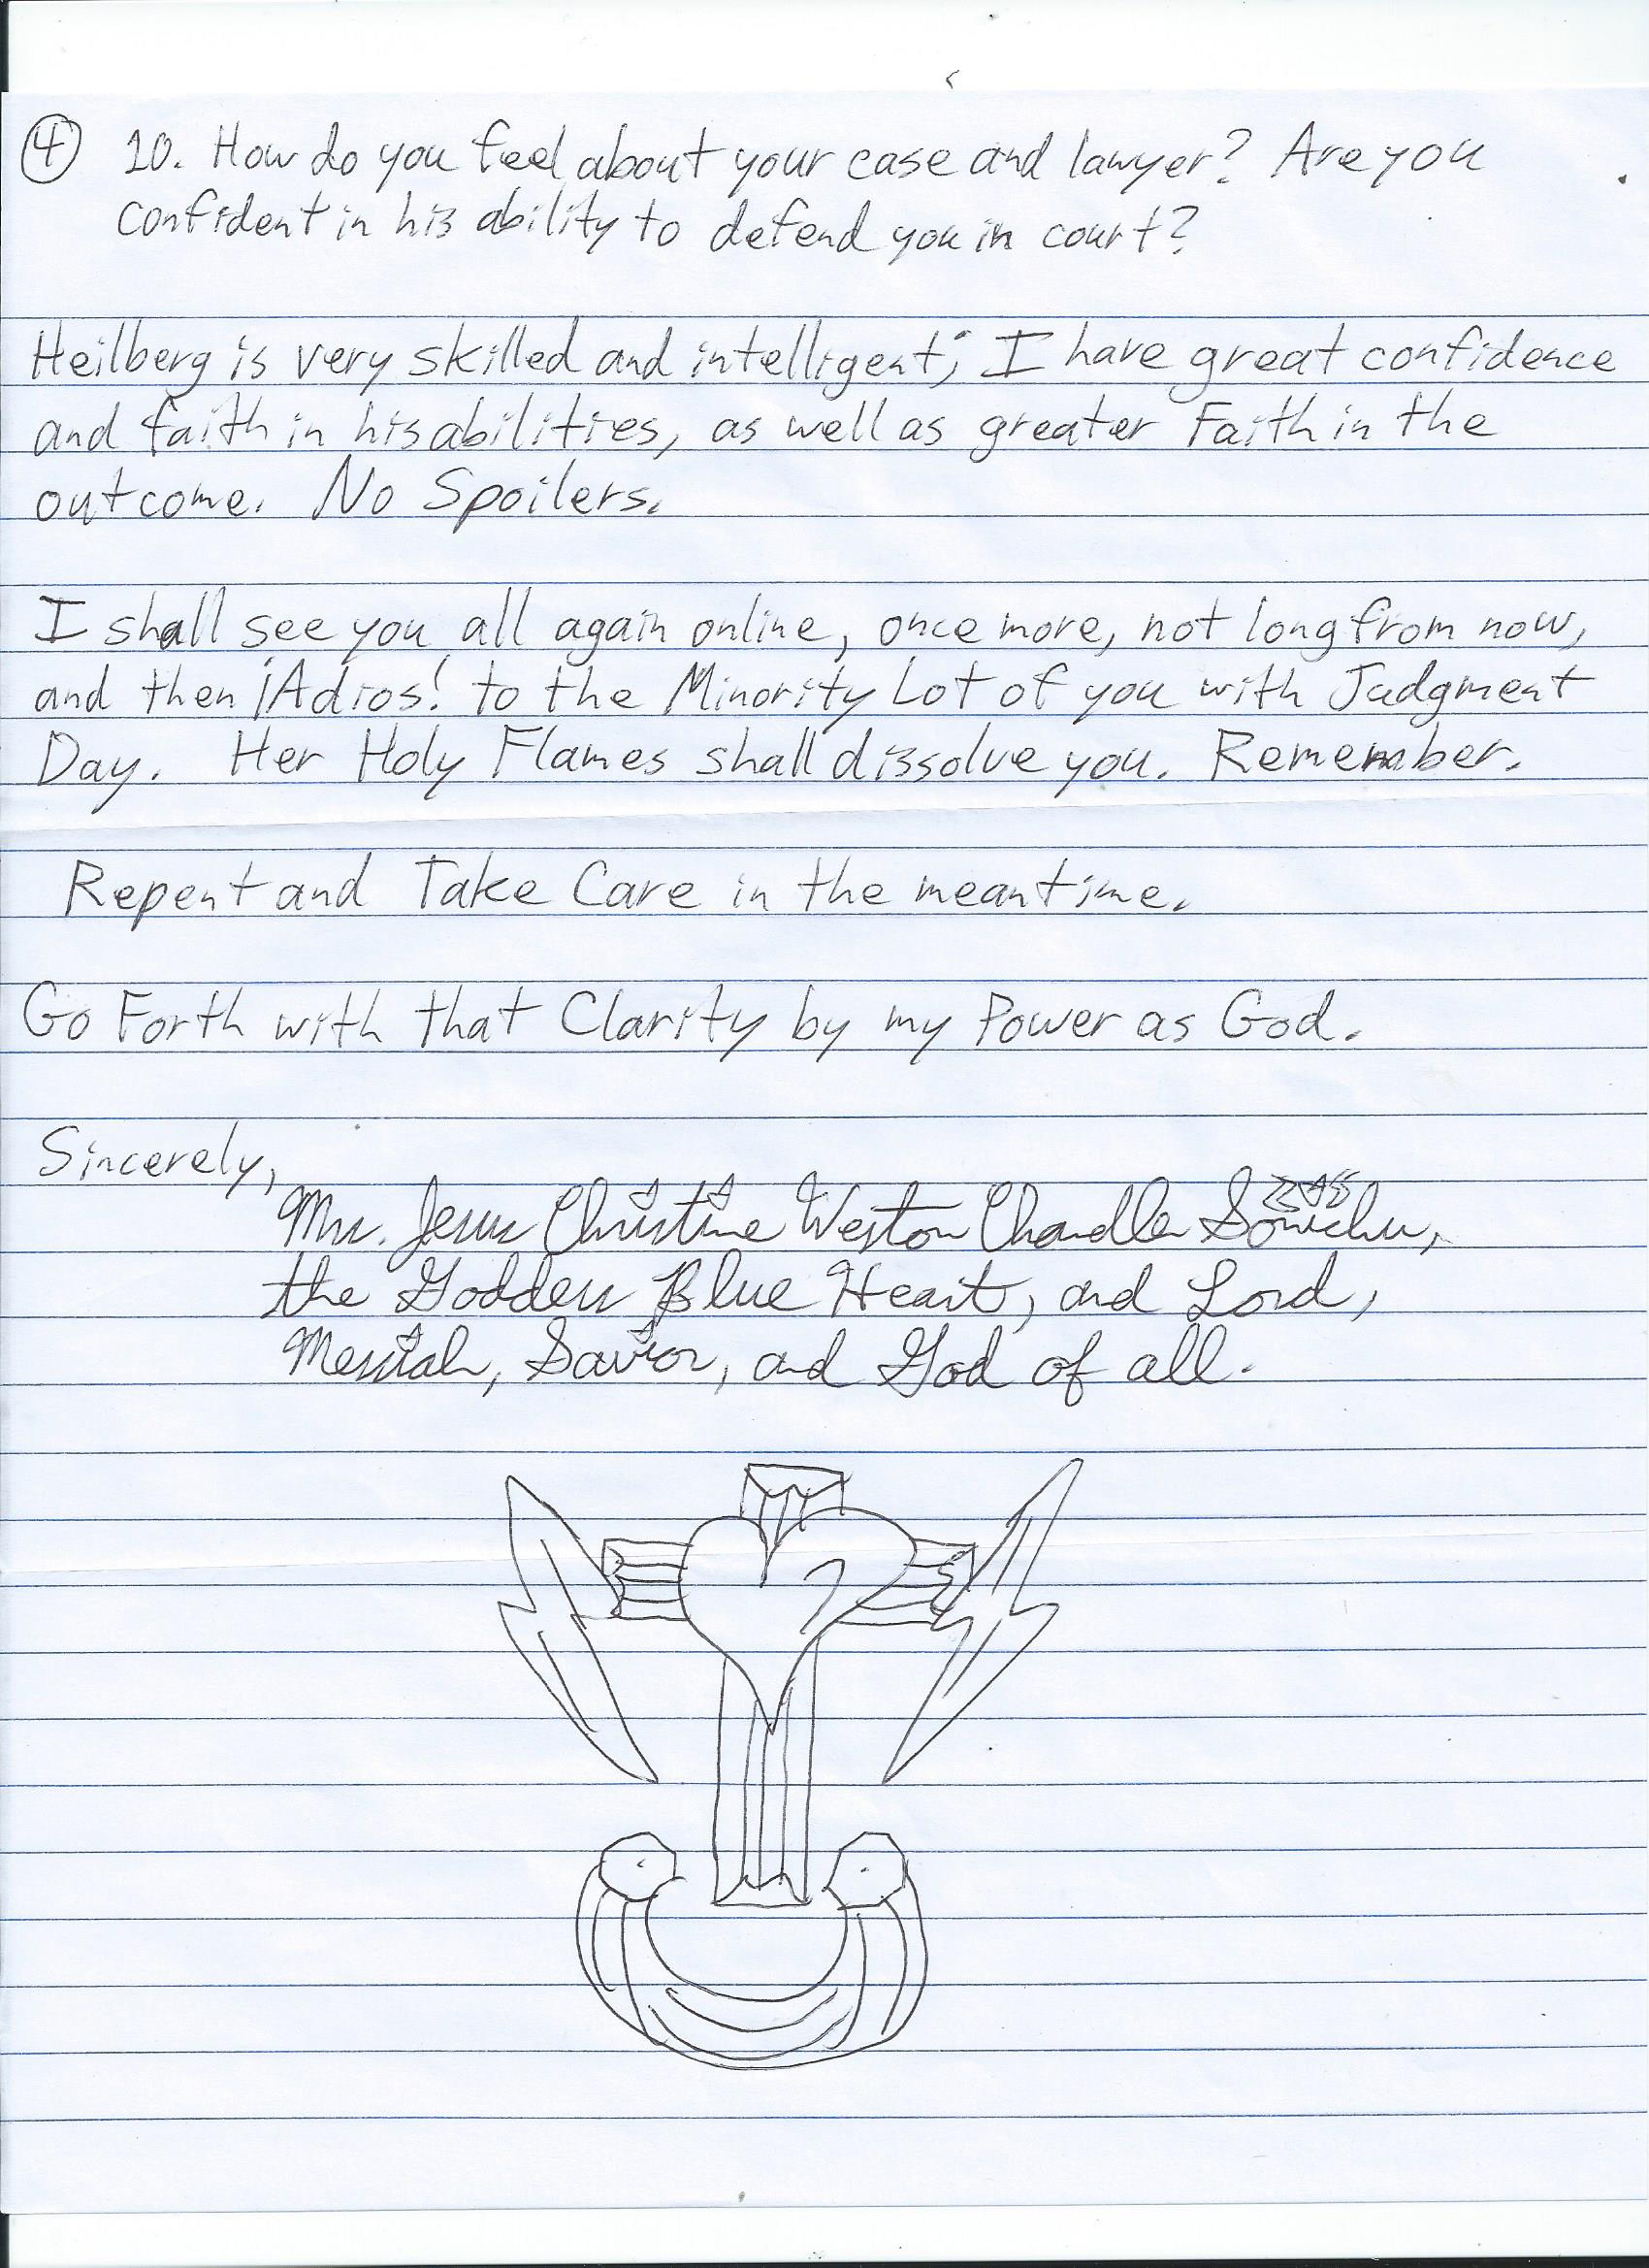 ④ 10. How do you feel about your case and lawyer? Are you
confident in his ability to defend you in court?
Heilberg is very skilled and intelligent; I have great confidence
and faith in his abilities, as well as greater Faith in the
outcome. No Spoilers.
I shall see you all again online, once more, not long from now,
and then ¡Adios! to the Minority Lot of you with Judgment
Day. Her Holy Flames shall dissolve you. Remember.
Repent and Take Care in the meantime.
Go Forth with that Clarity by my Power as God.
Sincerely,
Mrs. Jesus Christine Weston Chandler Sonichu,
the Goddess Blue Heart, and Lord,
Messiah, Savior, and God of all.